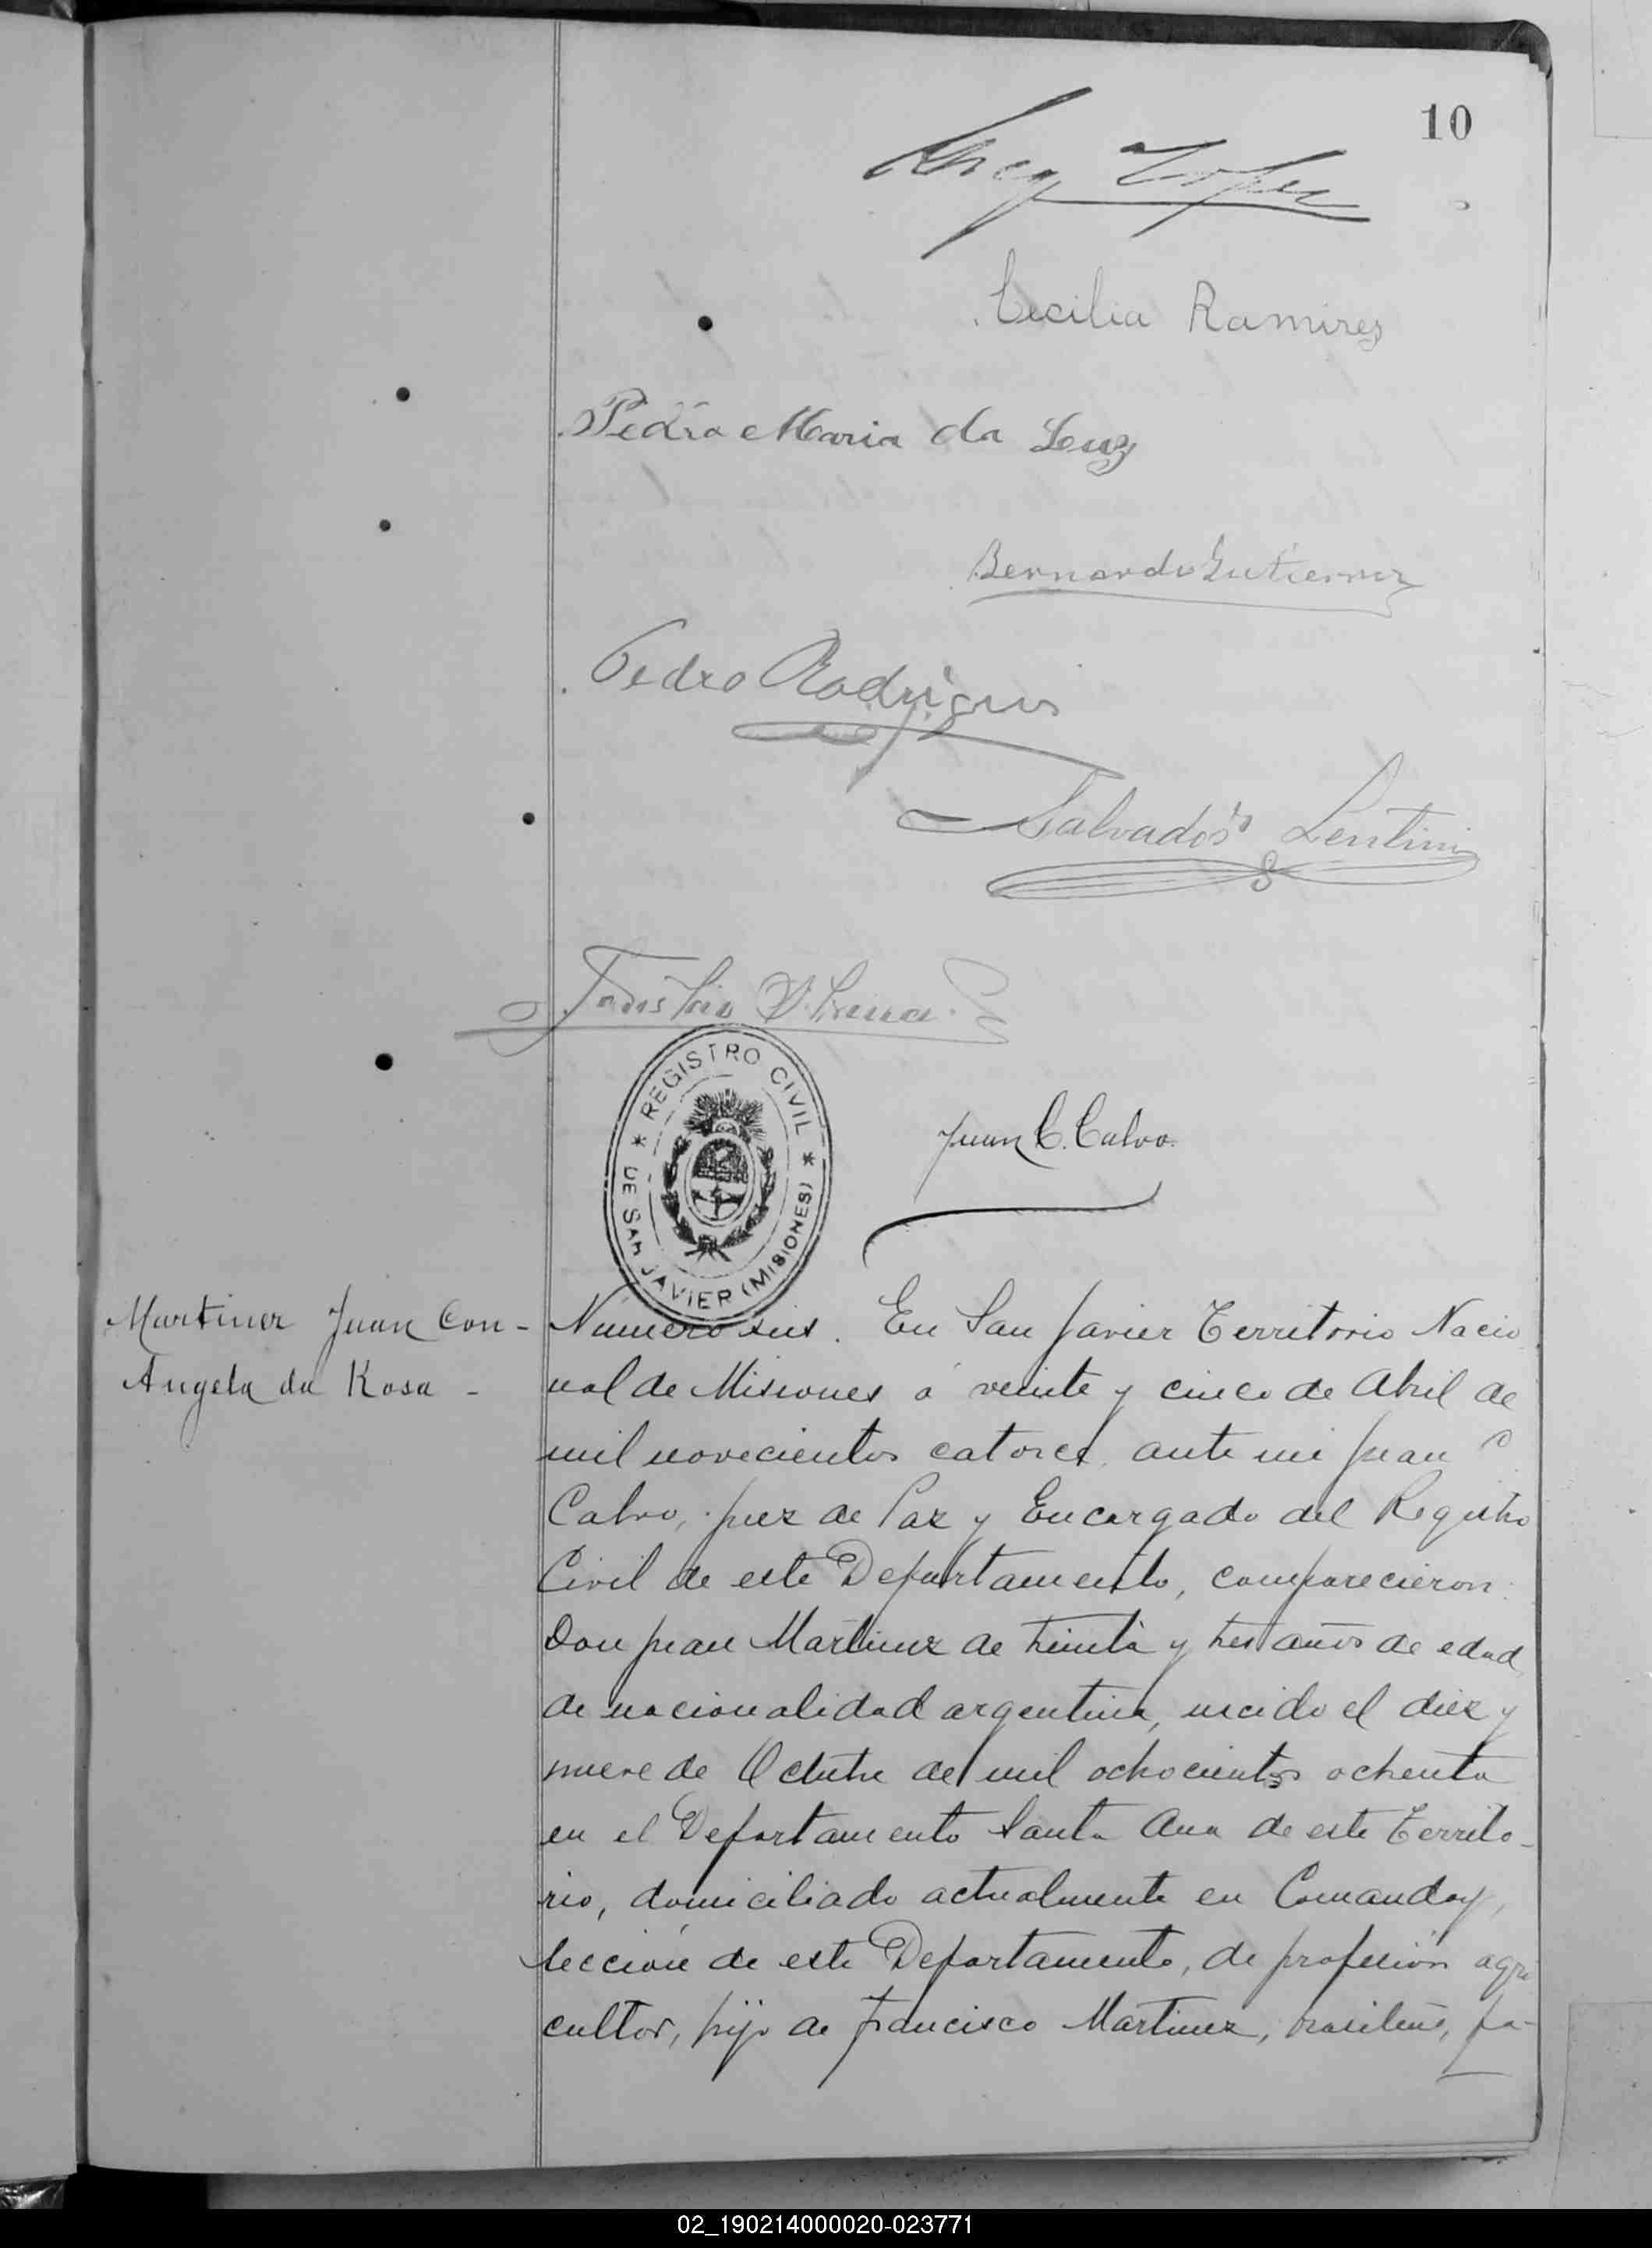 10
Lopez
Cecilia Ramires
Pedro Maria da Luz
Bernardo Gutierrez
Pedro Rodrigues
Salvador Lentini
REGISTRO CIVIL
DE SAN JAVIER (MISIONES)
Juan C. Calvo.
Martinez Juan Con -
Angela da Rosa -
Número seis. En San Javier Territorio Nacio
nal de Misiones á veinte y cinco de Abril de
mil novecientos catorce, ante mi Juan C
Calvo, Juez de Paz y Encargado del Registro
Civil de este Departamento, comparecieron:
Don Juan Martinez de treinta y tres años de edad
de nacionalidad argentina, nacido el diez y
nueve de Octubre de mil ochocientos ochenta
en el Departamento Santa Ana de este Territo-
rio, domiciliado actualmente en Comanday,
Sección de este Departamento, de profesión agri
cultor, hijo de Francisco Martinez, brasileño, fa-
02_190214000020-023771